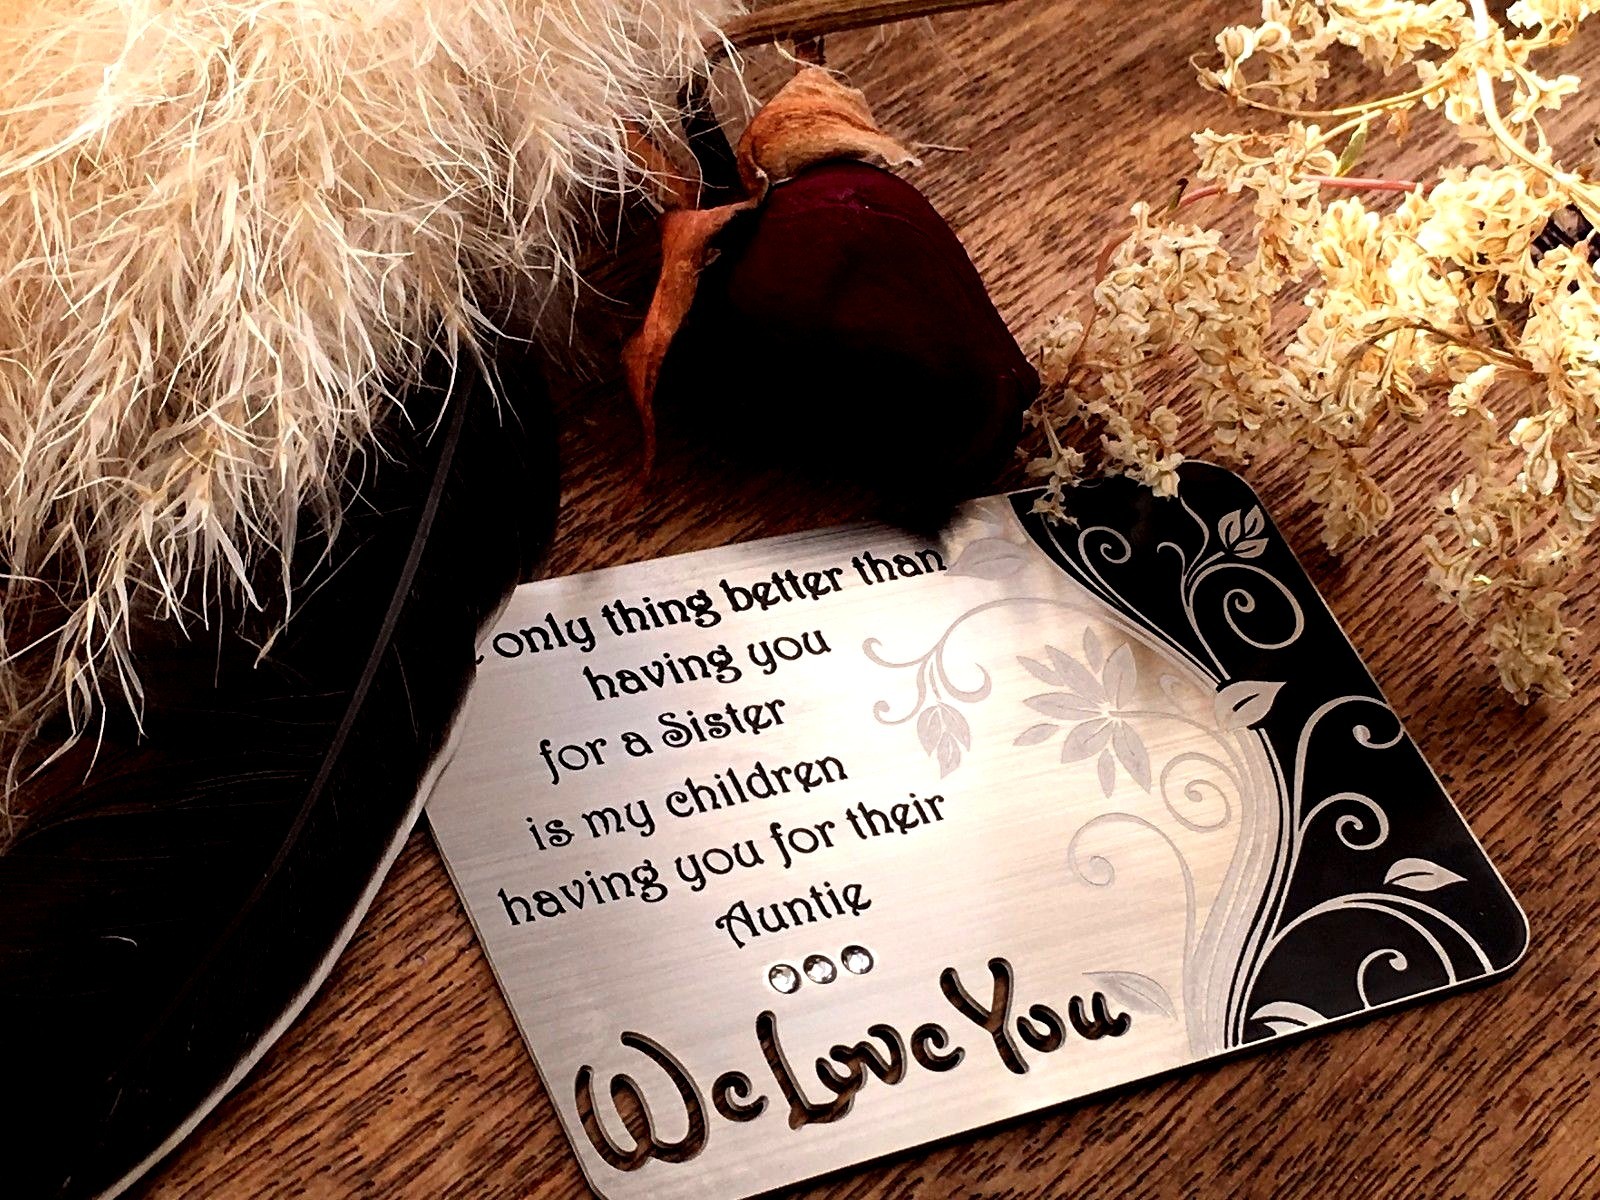 only thing better than
having you
for a Sister
is my children
having you for their
Auntie
We Love You